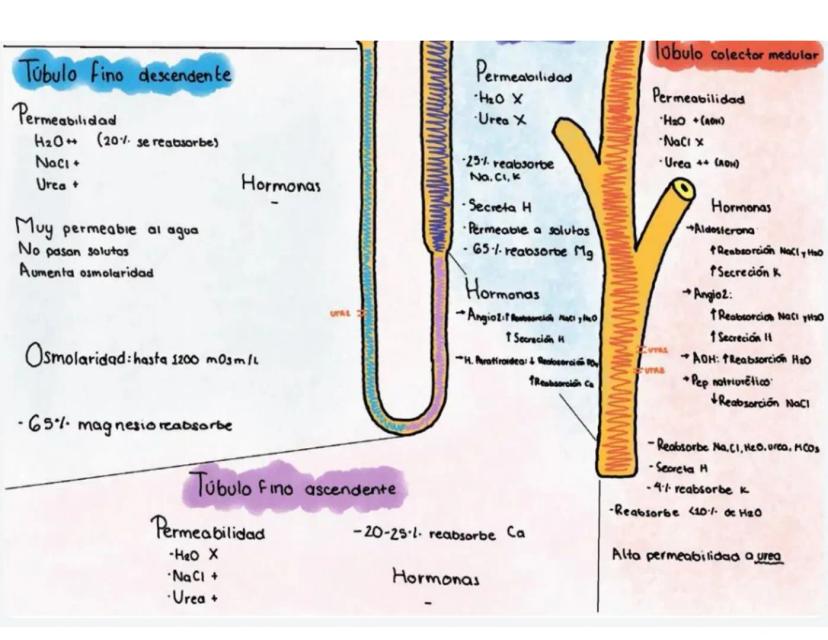 Túbulo fino descendente
Permeabilidad
H2O ++ (20% se reabsorbe)
NaCl +
Urea +
Hormonas
-
Muy permeable al agua
No pasan solutos
Aumenta osmolaridad
Osmolaridad: hasta 1200 mOsm/L
- 65% magnesio reabsorbe
UTA2
Permeabilidad
·H2O X
·Urea X
·25% reabsorbe
Na, Cl, K
·Secreta H
·Permeable a solutos
- 65% reabsorbe Mg
Hormonas
→Angio2: ↑Reabsorción NaCl y H2O
↑Secreción H
→H. Paratiroidea: ↓ Reabsorción PO4
↑Reabsorción Ca
Túbulo colector medular
Permeabilidad
·H2O +(ADH)
·NaCl X
·Urea ++ (ADH)
Hormonas
→Aldosterona
↑Reabsorción NaCl y H2O
↑Secreción K
→Angio2:
↑Reabsorción NaCl y H2O
↑Secreción H
→ADH: ↑Reabsorción H2O
→Pep natriurético:
↓Reabsorción NaCl
UTA1
- Reabsorbe Na, Cl, H2O, urea, HCO3
- Secreta H
- 4% reabsorbe K
-Reabsorbe <10% de H2O
Alta permeabilidad a urea
Túbulo fino ascendente
Permeabilidad
·H2O X
·NaCl +
·Urea +
-20-25% reabsorbe Ca
Hormonas
-